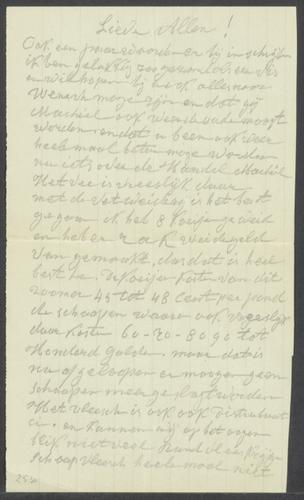 Lieve Allen!
Ook een paar woorden er bij in schrijven
ik ben gelukkig zoo gezond als een Vis
en wil hopen bij U ook alles naar
Wensch moge zijn en dat gij
Machiel ook weer oude moogt
worden en dat u been ook weer
heelemaal beter moge worden
nu iets over de Handel Machiel
Het vee is vreeslijk duur
met de Vetweiderij is het best
gegaan ik heb 8 Koeijen geweid
en heb er zak weidegeld
van gemaakt, dus dat is heel
best he. De Koeijen kosten van dit
zoomer 45 tot 48 cent per pond
de schaapen waren ook vreeslijk
duur kosten 60-70-80 90 tot
Honderd Gulden. maar dat is
nu afgeloopen er mogen geen
schaapen meer geslagt worden
Het vleesch is ook ook distributie
en kunnen wij op het oogen
blik niet veel Rund vleesch krijgen
schaap vleesch heelemaal niet